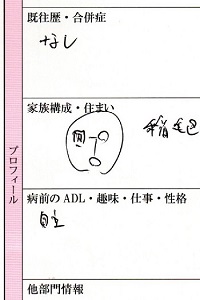 既往歴・合併症
なし
家族構成・住まい
プロフィール
病前のADL・趣味・仕事・性格
自立
他部門情報